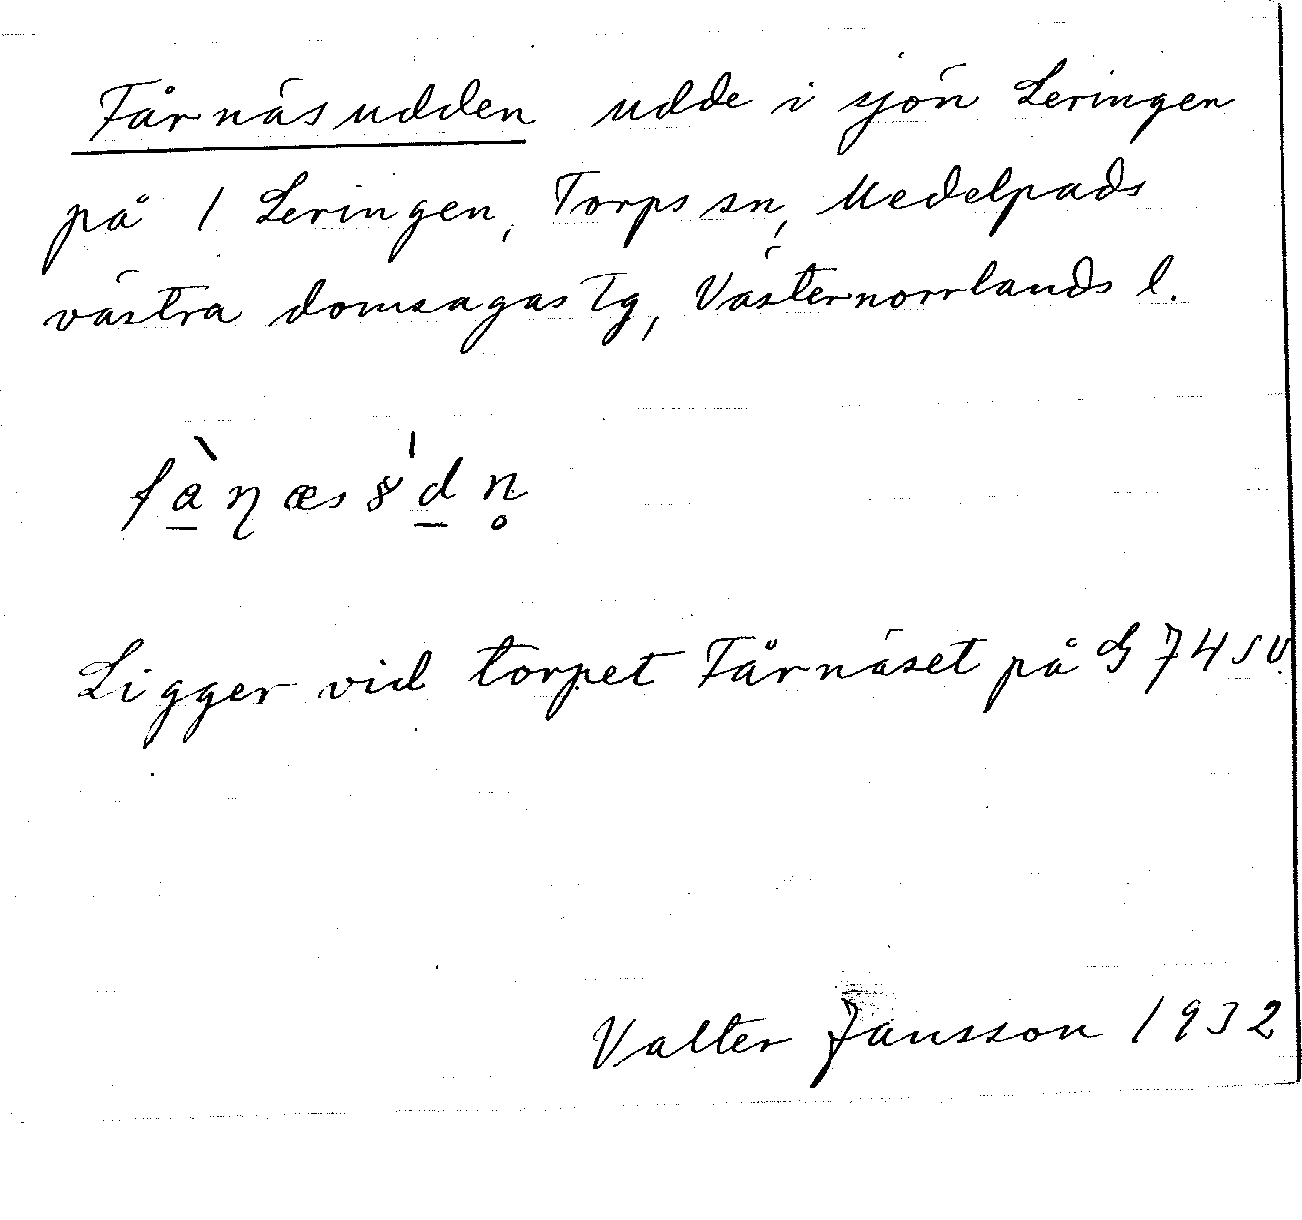 Fårnäsudden udde i sjön Leringen
på 1 Leringen, Torps sn, Medelpads
västra domsagas tg, Västernorrlands l.
Ligger vid torpet Fårnäset på G 74 SV.
Valter Jansson 1932